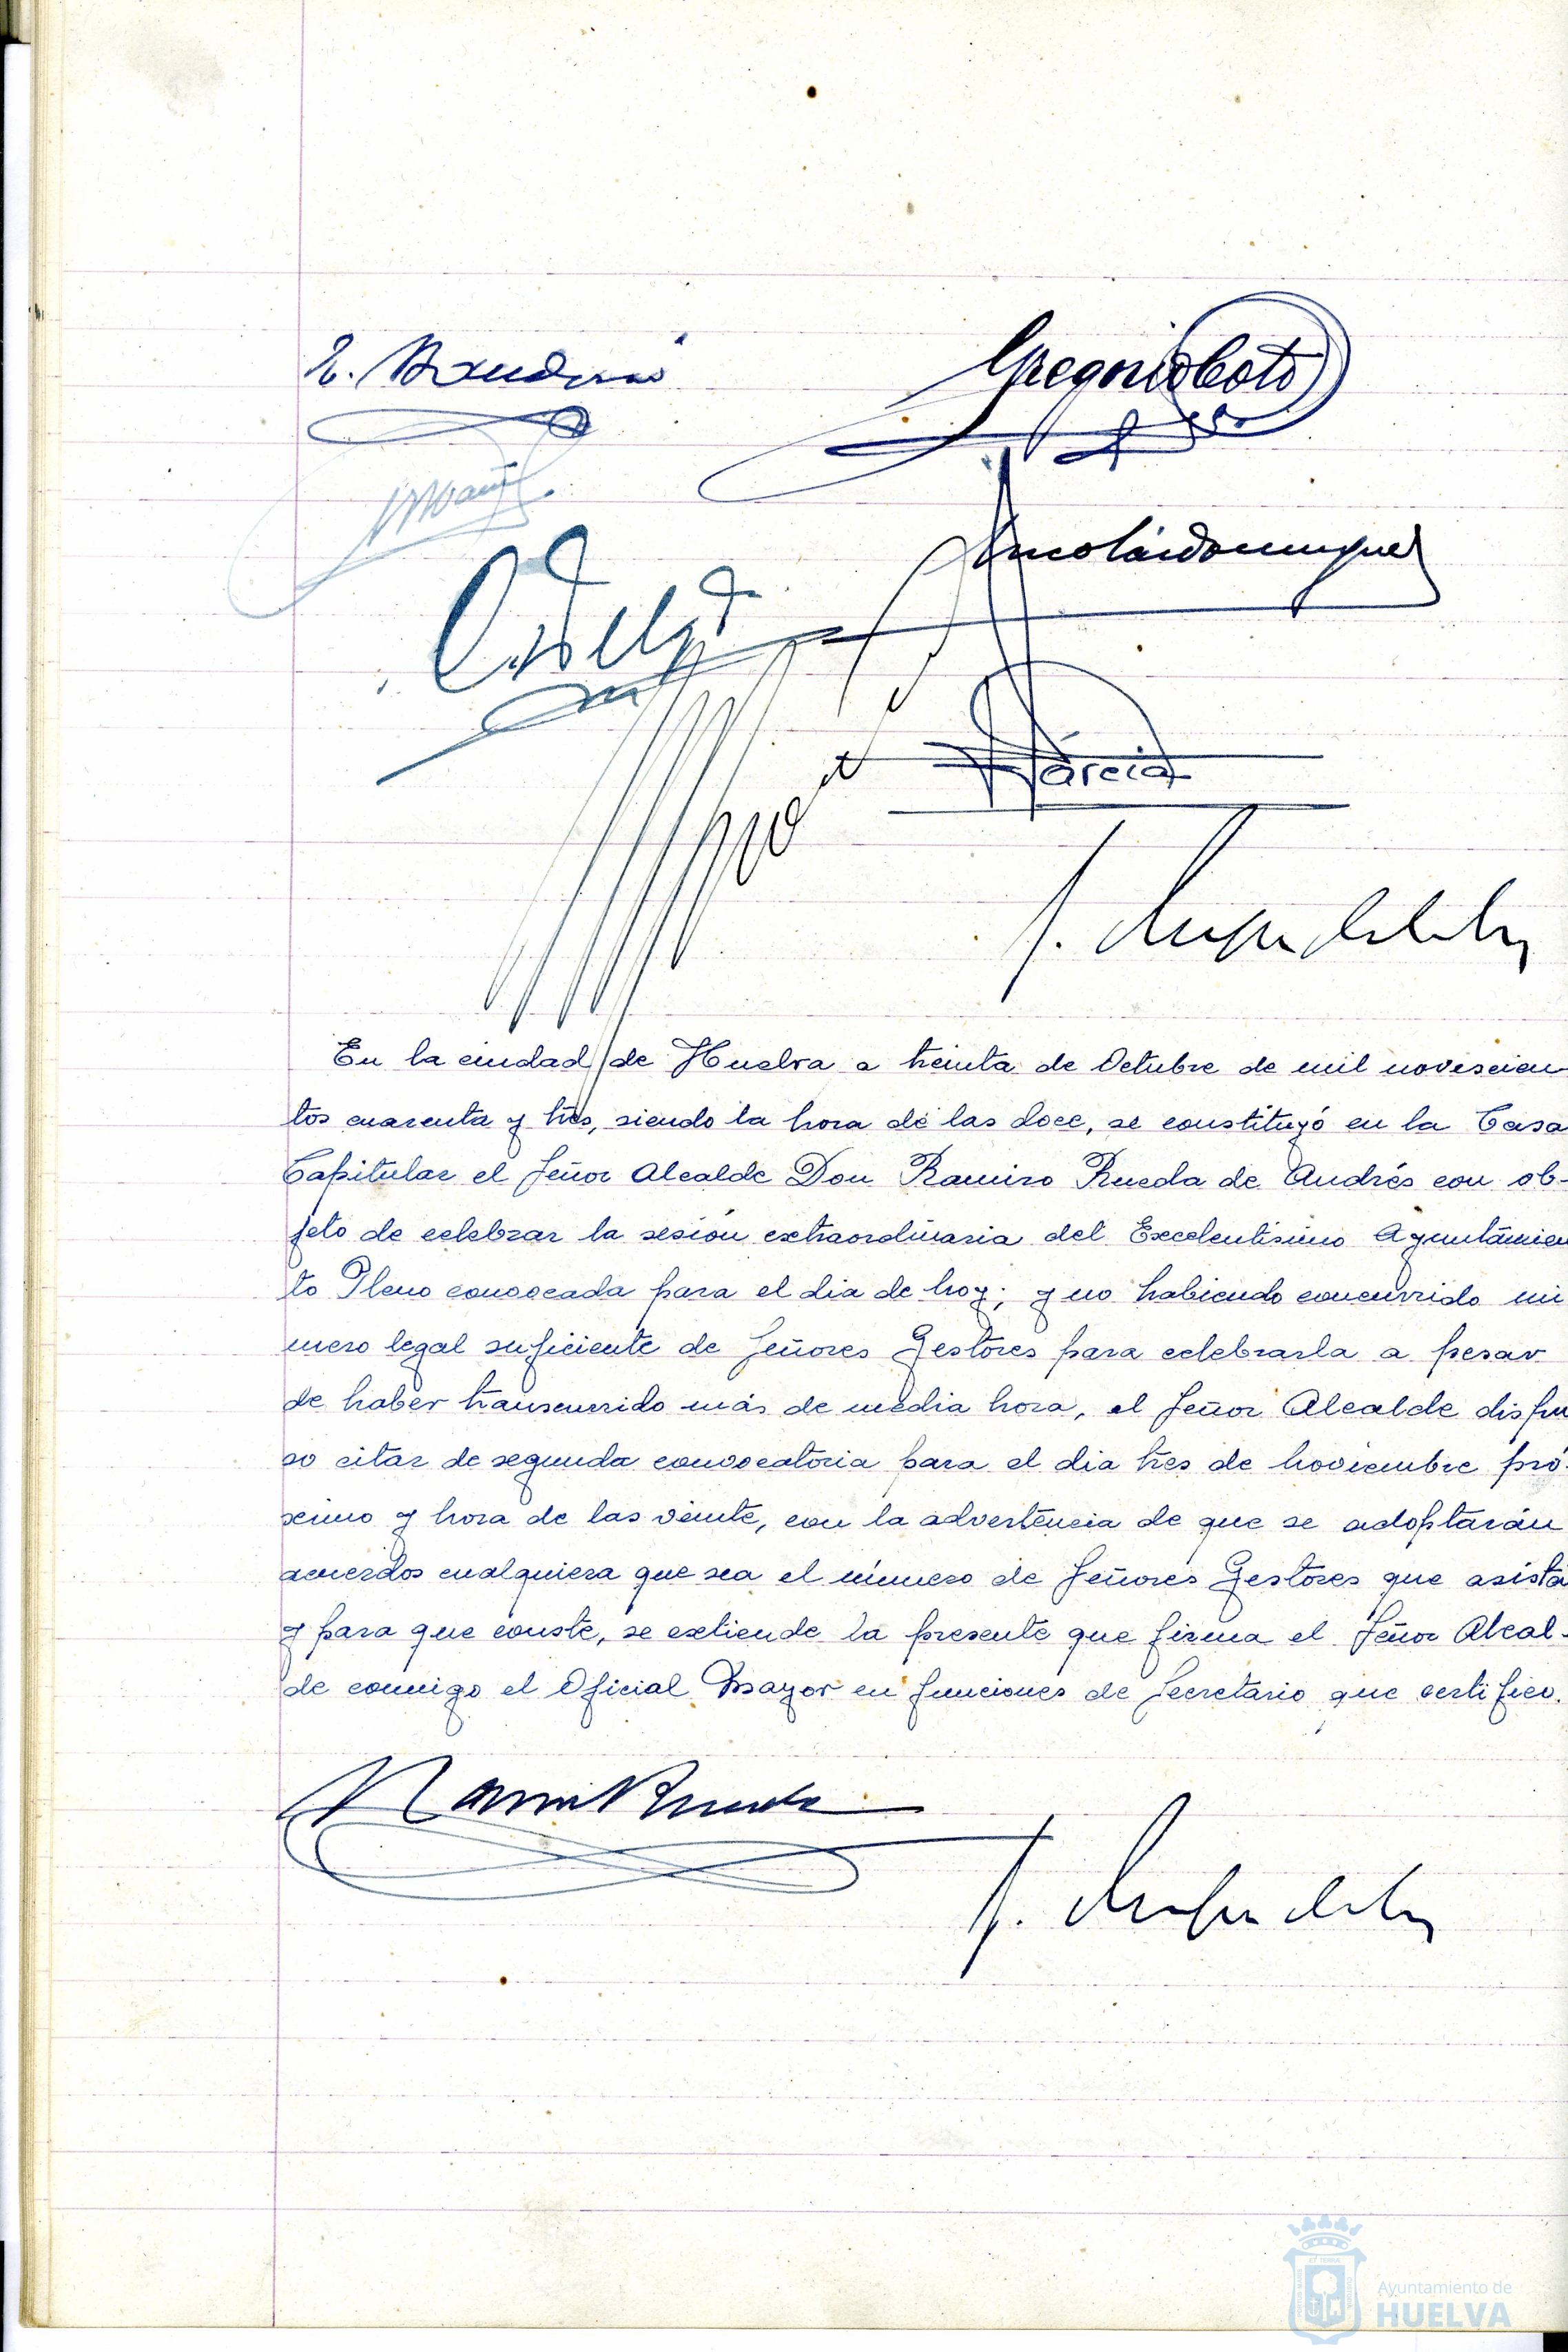 Gregorio Coto
Nicolás Domínguez
García
En la ciudad de Huelva a treinta de Octubre de mil novescien
tos cuarenta y tres, siendo la hora de las doce, se constituyó en la Casa
Capitular el Señor Alcalde Don Ramiro Rueda de Andrés con ob-
jeto de celebrar la sesión extraordinaria del Excelentísimo Ayuntamien
to Pleno convocada para el dia de hoy; y no habiendo concurrido nú
mero legal suficiente de Señores Gestores para celebrarla a pesar
de haber transcurrido más de media hora, el Señor Alcalde dispu
so citar de segunda convocatoria para el dia tres de Noviembre pró-
ximo y hora de las veinte, con la advertencia de que se adoptarán
acuerdos cualquiera que sea el número de Señores Gestores que asista
y para que conste, se extiende la presente que firma el Señor Alcal-
de conmigo el Oficial Mayor en funciones de Secretario que certifico.
Ramiro Rueda
Ayuntamiento de
HUELVA